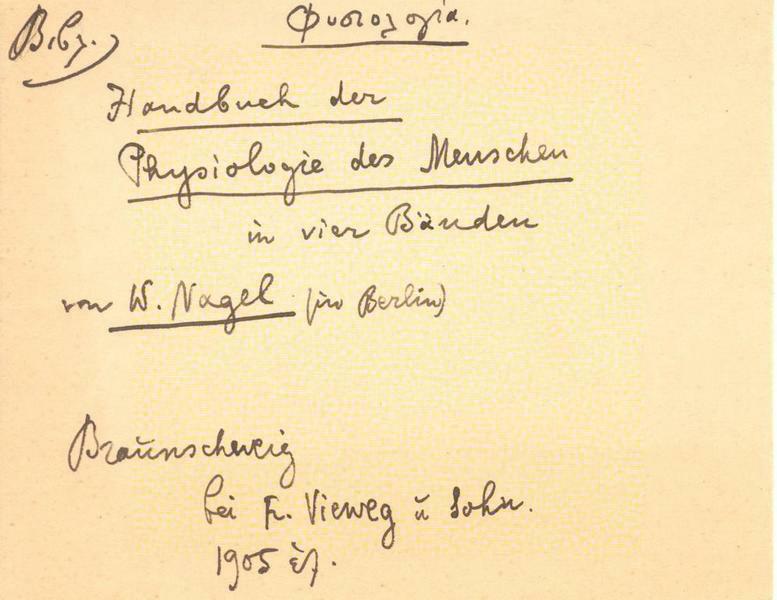 Βιβλ.
Φυσιολογία.
Handbuch der
Physiologie des Menschen
in vier Bänden
von W. Nagel (in Berlin)
Braŭnschweig
bei Fr. Vieweg ŭ Sohn.
1905 ἑξ.